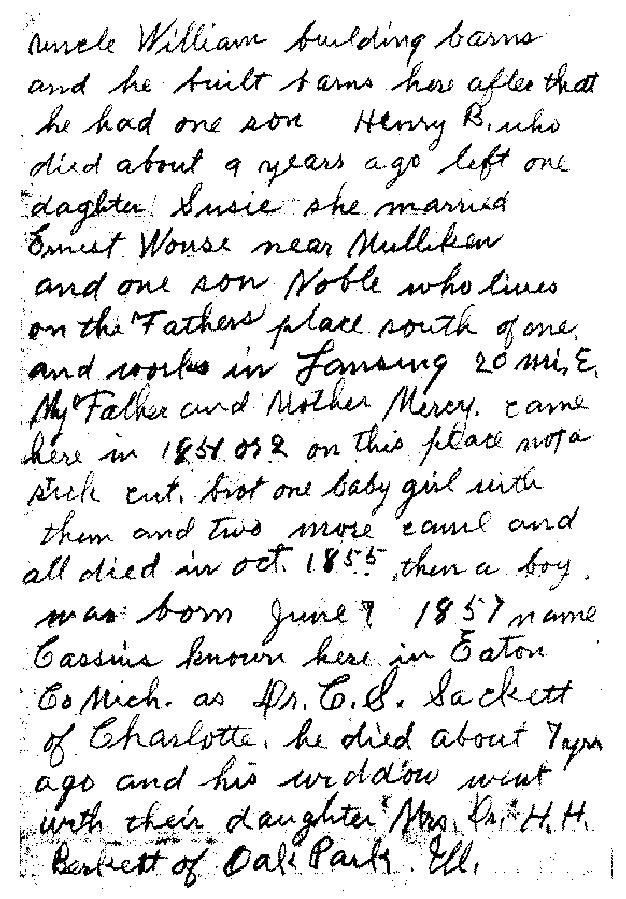 uncle William building barns
and he built barns here after that
he had one son Henry B. who
died about 9 years ago left one
daghter Susie she married
Ernest near Mulliken
and one son Noble who lives
on the Fathers place south of me
and works in Lansing 20 mi, E.
My Father and Mother Mercy. came
here in 1851 or 2 on this place not a
stick cut. brot one baby girl with
them and two more came and
all died in oct. 1855 then a boy.
was born June 1857 name
Cassius known here in Eaton
Co Mich. as Dr. C. S. Sackett
of Charlotte. he died about 7 yrs
ago and his widdow went
with their daughter Mrs. Dr. H. H.
of Oak Park. Ill.